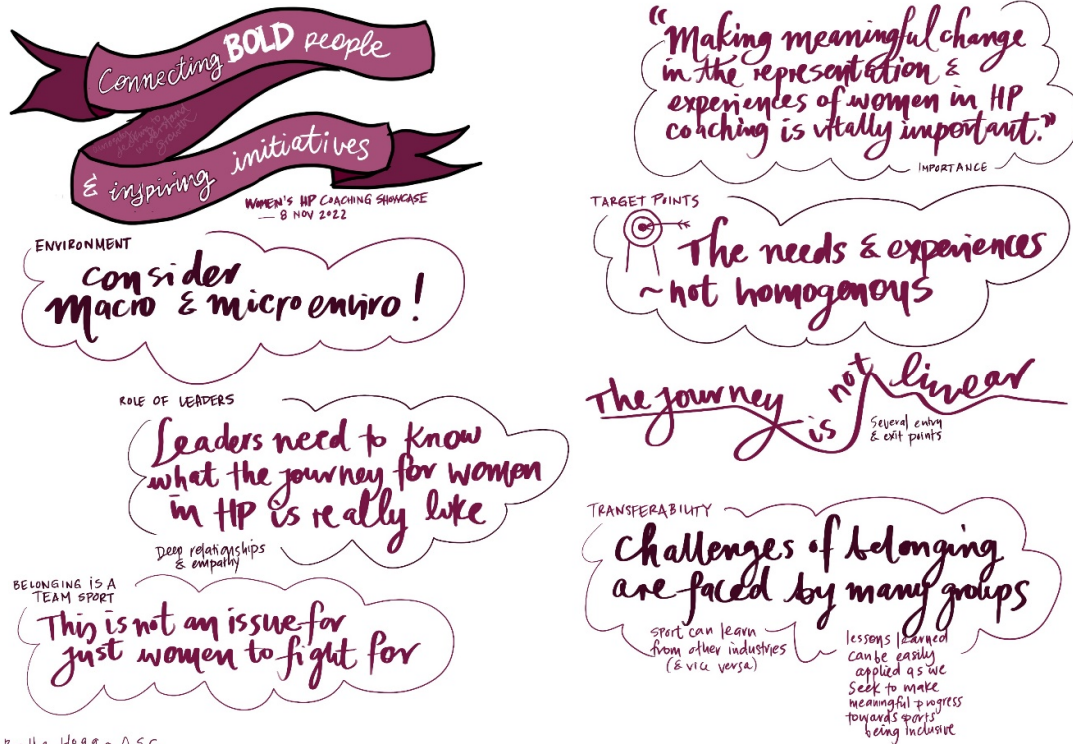 Connecting BOLD people
& inspiring initiatives
WOMEN'S HP COACHING SHOWCASE
— 8 NOV 2022
ENVIRONMENT
consider
Macro & micro enviro!
ROLE OF LEADERS
Leaders need to know
what the journey for women
in HP is really like
Deep relationships
& empathy
BELONGING IS A
TEAM SPORT
This is not an issue for
just women to fight for
"Making meaningful change
in the representation &
experiences of women in HP
coaching is vitally important."
IMPORTANCE
TARGET POINTS
The needs & experiences
~ not homogenous
The journey is not linear
Several entry
& exit points
TRANSFERABILITY
Challenges of belonging
are faced by many groups
Sport can learn
from other industries
(& vice versa)
lessons learned
can be easily
applied as we
Seek to make
meaningful progress
towards sports
being inclusive